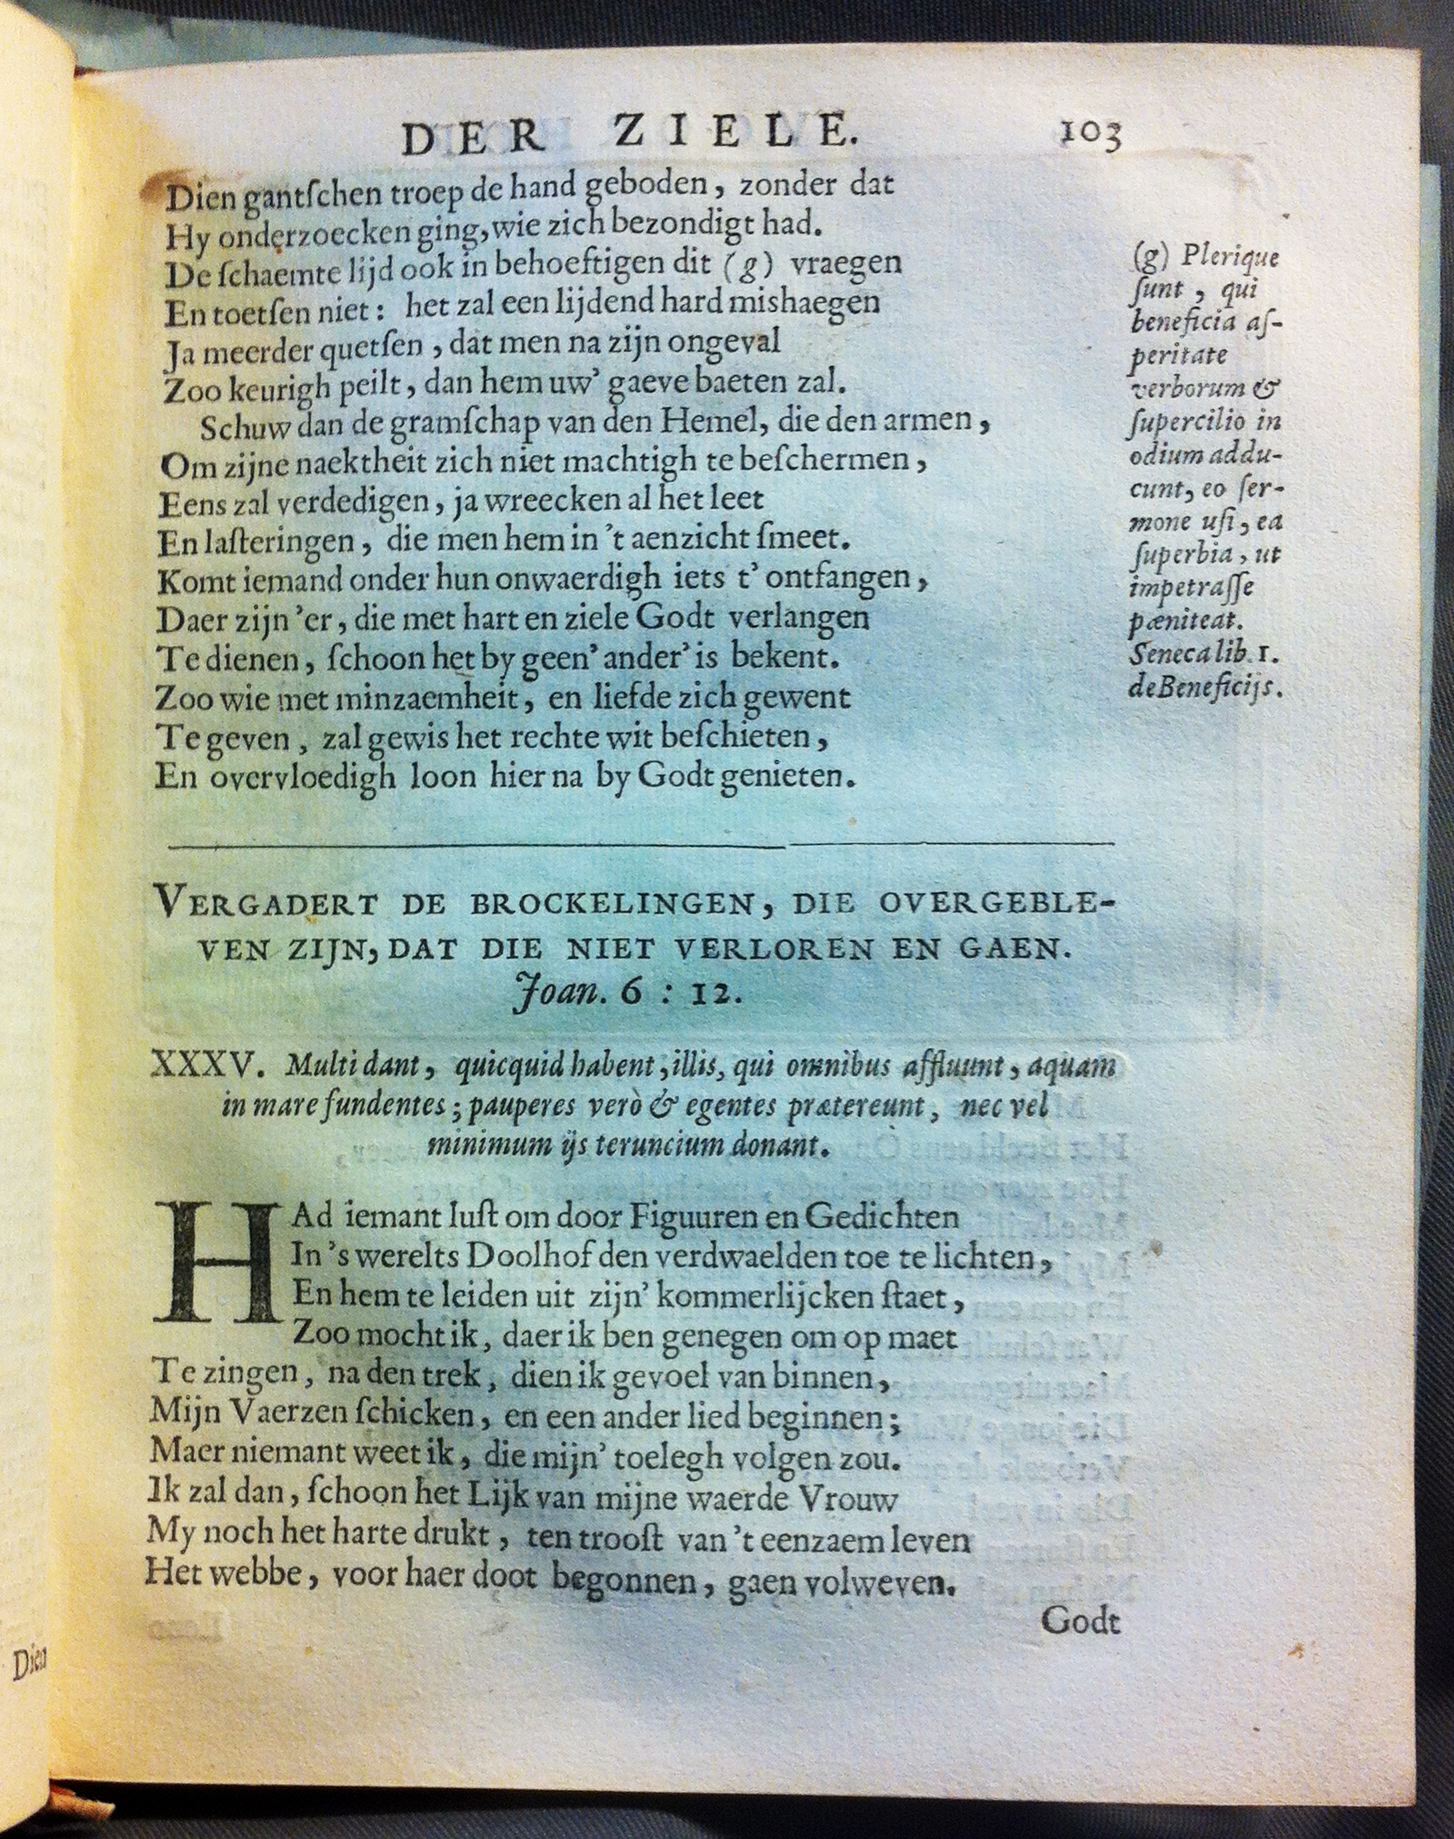 DER ZIELE. 103
Dien gantſchen troep de hand geboden, zonder dat
Hy onderzoecken ging, wie zich bezondigt had.
De ſchaemte lijd ook in behoeftigen dit (g) vraegen
En toetſen niet: het zal een lijdend hard mishaegen
Ja meerder quetſen, dat men na zijn ongeval
Zoo keurigh peilt, dan hem uw' gaeve baeten zal.
Schuw dan de gramſchap van den Hemel, die den armen,
Om zijne naektheit zich niet machtigh te beſchermen,
Eens zal verdedigen, ja wreecken al het leet
En laſteringen, die men hem in 't aenzicht ſmeet.
Komt iemand onder hun onwaerdigh iets t' ontfangen,
Daer zijn 'er, die met hart en ziele Godt verlangen
Te dienen, ſchoon het by geen' ander' is bekent.
Zoo wie met minzaemheit, en liefde zich gewent
Te geven, zal gewis het rechte wit beſchieten,
En overvloedigh loon hier na by Godt genieten.
(g) Plerique
ſunt, qui
beneficia aſ-
peritate
verborum &
ſupercilio in
odium addu-
cunt, eo ſer-
mone uſi, ea
ſuperbia, ut
impetraſſe
pæniteat.
Seneca lib. 1.
de Beneficijs.
VERGADERT DE BROCKELINGEN, DIE OVERGEBLE-
VEN ZIJN, DAT DIE NIET VERLOREN EN GAEN.
Joan. 6 : 12.
XXXV. Multi dant, quicquid habent, illis, qui omnibus affluunt, aquam
in mare fundentes; pauperes verò & egentes prætereunt, nec vel
minimum ijs teruncium donant.
HAd iemant luſt om door Figuuren en Gedichten
In 's werelts Doolhof den verdwaelden toe te lichten,
En hem te leiden uit zijn' kommerlijcken ſtaet,
Zoo mocht ik, daer ik ben genegen om op maet
Te zingen, na den trek, dien ik gevoel van binnen,
Mijn Vaerzen ſchicken, en een ander lied beginnen;
Maer niemant weet ik, die mijn' toelegh volgen zou.
Ik zal dan, ſchoon het Lijk van mijne waerde Vrouw
My noch het harte drukt, ten trooſt van 't eenzaem leven
Het webbe, voor haer doot begonnen, gaen volweven.
Godt
Dien